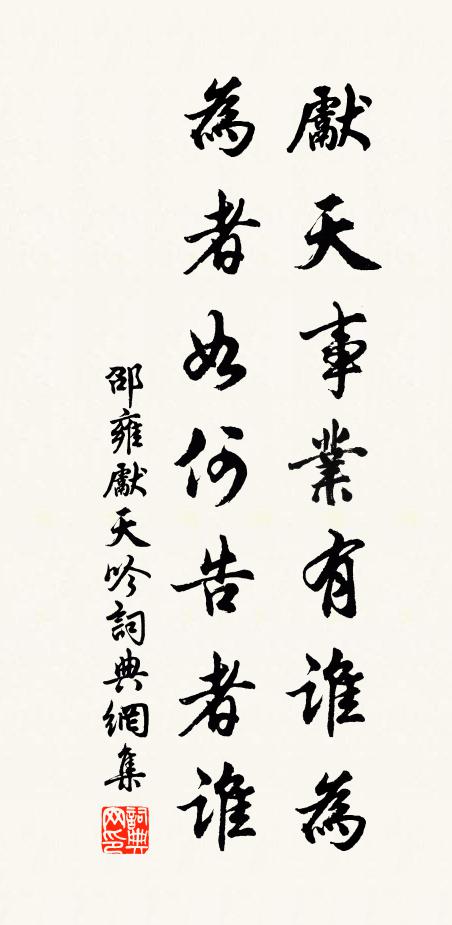 獻天事業有誰為
為者如何告者誰
邵雍獻天吟詞典網集
詞典网印